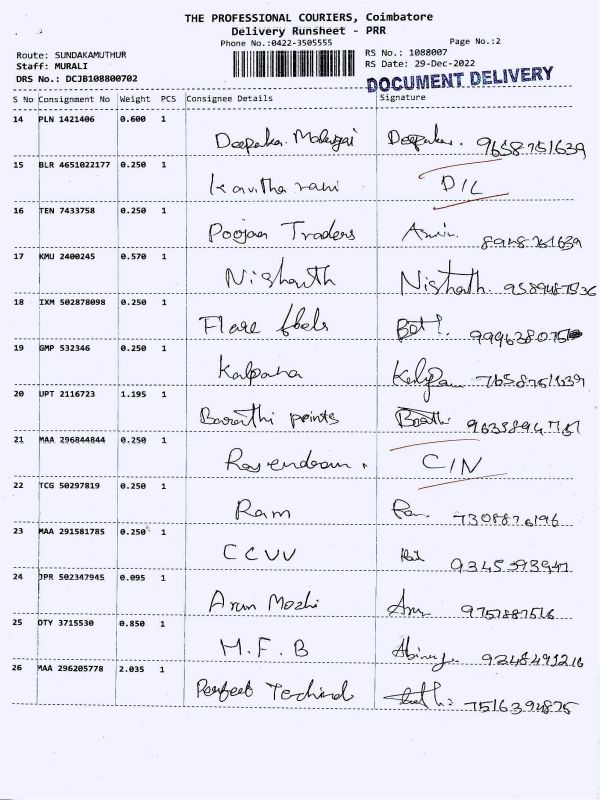 THE PROFESSIONAL COURIERS, Coimbatore
Delivery Runsheet - PRR
Phone No.:0422-3505555
Page No.:2
Route: SUNDAKAMUTHUR
RS No.: 1088007
Staff: MURALI
RS Date: 29-Dec-2022
DRS No.: DCJB108800702
DOCUMENT DELIVERY
S No Consignment No Weight PCS Consignee Details Signature
14 PLN 1421406 0.600 1
Deepaka 9658751639
15 BLR 4651022177 0.250 1
Kavitha rani D/L
16 TEN 7433758 0.250 1
Poojaa Traders 8948751639
17 KMU 2400245 0.570 1
Nishanth Nishath. 9589487536
18 IXM 502878098 0.250 1
Flare
19 GMP 532346 0.250 1
Kalpana 7658751639
20 UPT 2116723 1.195 1
Barathi points
21 MAA 296844844 0.250 1
Rajendran. C/N
22 TCG 50297819 0.250 1
Ram 7308876196
23 MAA 291581785 0.250 1
CCVV 9345393941
24 JPR 502347945 0.095 1
Arun Mozhi 9751887516
25 OTY 3715530 0.850 1
M.F.B 9248491216
26 MAA 296205778 2.035 1
Perfect 7516394875